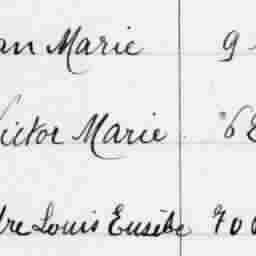 an Marie 9
Victor Marie 68
dre Louis Eusèbe 700